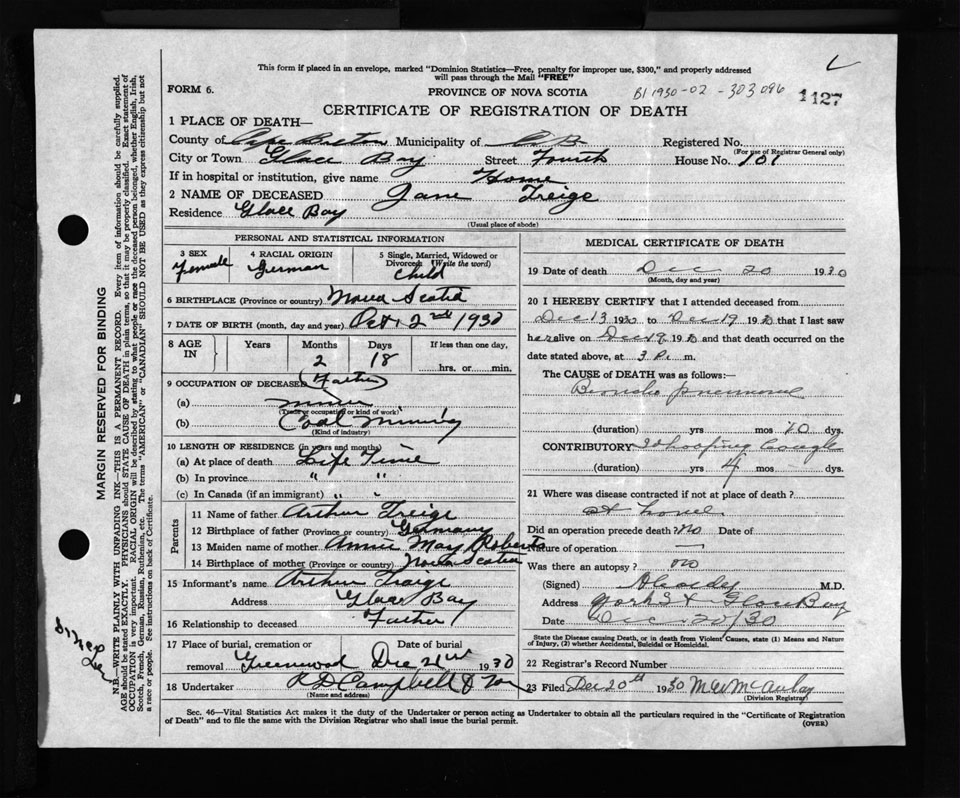 This form if placed in an envelope, marked "Dominion Statistics—Free, penalty for improper use, $300," and properly addressed
will pass through the Mail "FREE"
FORM 6.
PROVINCE OF NOVA SCOTIA
B1 1930-02-303096
1127
CERTIFICATE OF REGISTRATION OF DEATH
1 PLACE OF DEATH—
County of Cape Breton Municipality of C B Registered No.
(For use of Registrar General only)
City or Town Glace Bay Street Fourth House No. 101
If in hospital or institution, give name Home
2 NAME OF DECEASED Jane Freige
Residence Glace Bay
(Usual place of abode)
PERSONAL AND STATISTICAL INFORMATION
3 SEX 4 RACIAL ORIGIN 5 Single, Married, Widowed or Divorced (Write the word)
Female German Child
6 BIRTHPLACE (Province or country) Nova Scotia
7 DATE OF BIRTH (month, day and year) Oct 2nd 1930
8 AGE IN Years Months Days If less than one day,
2 18 hrs. or min.
9 OCCUPATION OF DECEASED (Father)
(a) miner
(Trade or occupation or kind of work)
(b) Coal Mining
(Kind of industry)
10 LENGTH OF RESIDENCE (in years and months)
(a) At place of death Life Time
(b) In province " "
(c) In Canada (if an immigrant) " "
Parents
11 Name of father Arthur Freige
12 Birthplace of father (Province or country) Germany
13 Maiden name of mother Annie May Roberts
14 Birthplace of mother (Province or country) Nova Scotia
15 Informant's name Arthur Fraige
Address Glace Bay
16 Relationship to deceased Father
17 Place of burial, cremation or removal Date of burial
Greenwood Dec 21st 1930
18 Undertaker R D Campbell & Son
(Name and address)
MEDICAL CERTIFICATE OF DEATH
19 Date of death Dec 20 1930
(Month, day and year)
20 I HEREBY CERTIFY that I attended deceased from
Dec 13 1930 to Dec 19 1930 that I last saw
her alive on Dec 19 1930 and that death occurred on the
date stated above, at 3 P. m.
The CAUSE of DEATH was as follows:—
Broncho pneumonia
(duration) yrs mos 10 dys.
CONTRIBUTORY Whooping Cough
(duration) yrs 4 mos dys.
21 Where was disease contracted if not at place of death?
at home
Did an operation precede death? No Date of
Nature of operation —
Was there an autopsy? No
(Signed) M.D.
Address York St Glace Bay
Date Dec 20/30
State the Disease causing Death, or in death from Violent Causes, state (1) Means and Nature of Injury, (2) whether Accidental, Suicidal or Homicidal.
22 Registrar's Record Number
23 Filed Dec 20th 1930 M W McAulay
(Division Registrar)
Sec. 46—Vital Statistics Act makes it the duty of the Undertaker or person acting as Undertaker to obtain all the particulars required in the "Certificate of Registration
of Death" and to file the same with the Division Registrar who shall issue the burial permit.
(OVER)
MARGIN RESERVED FOR BINDING
N.B.—WRITE PLAINLY WITH UNFADING INK—THIS IS A PERMANENT RECORD. Every item of information should be carefully supplied.
AGE should be stated EXACTLY. PHYSICIANS should STATE CAUSE OF DEATH in plain terms, so that it may be properly classified. Exact statement of
OCCUPATION is very important. RACIAL ORIGIN will be described by stating to what people or race the deceased person belonged, whether English, Irish,
Scotch, French, German, Russian, Ruthenian, etc. The terms "AMERICAN" or "CANADIAN" SHOULD NOT BE USED as they express citizenship but not
a race or people. See instructions on back of Certificate.